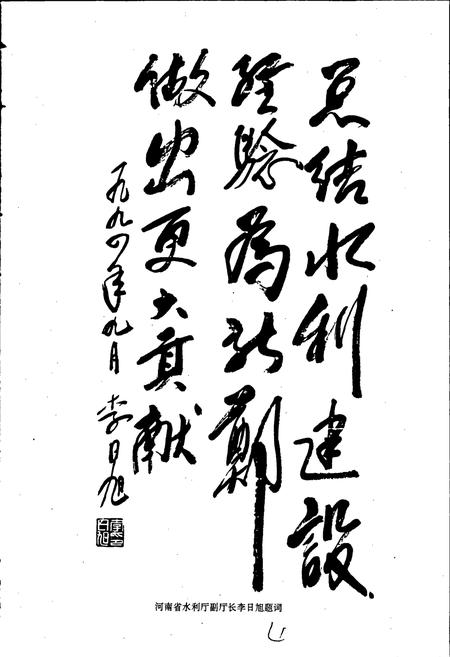 总结水利建設
经驗為新鄭
做出更大貢献
一九九四年九月 李日旭
河南省水利厅副厅长李日旭题词